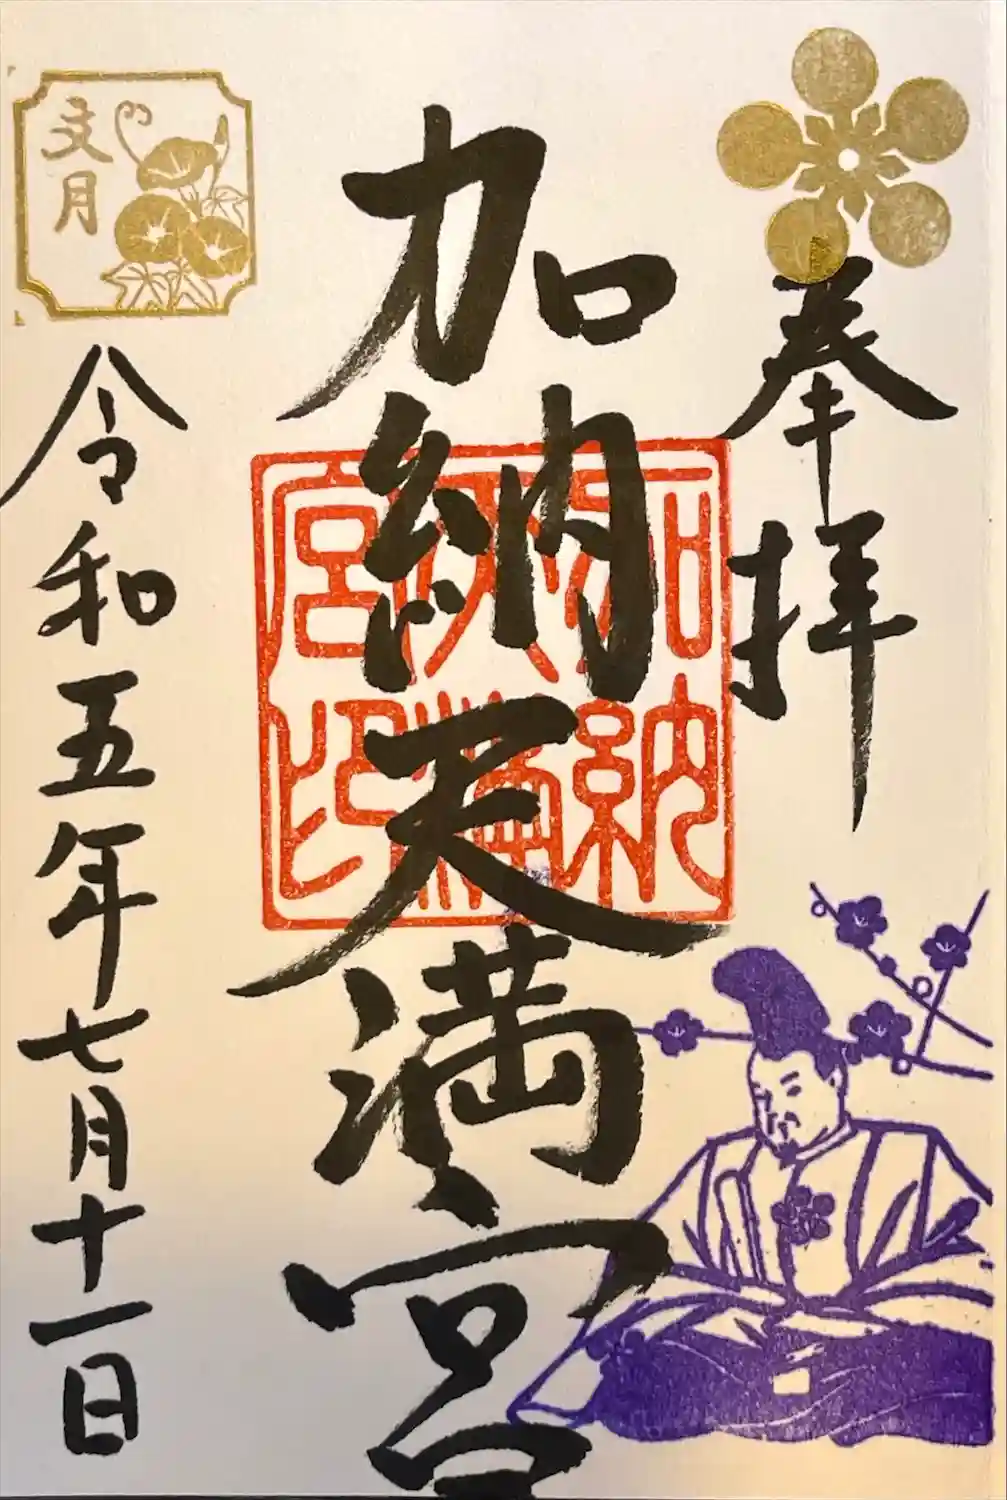 奉拝
加納天満宮
加納天満宮印
文月
令和五年七月十一日